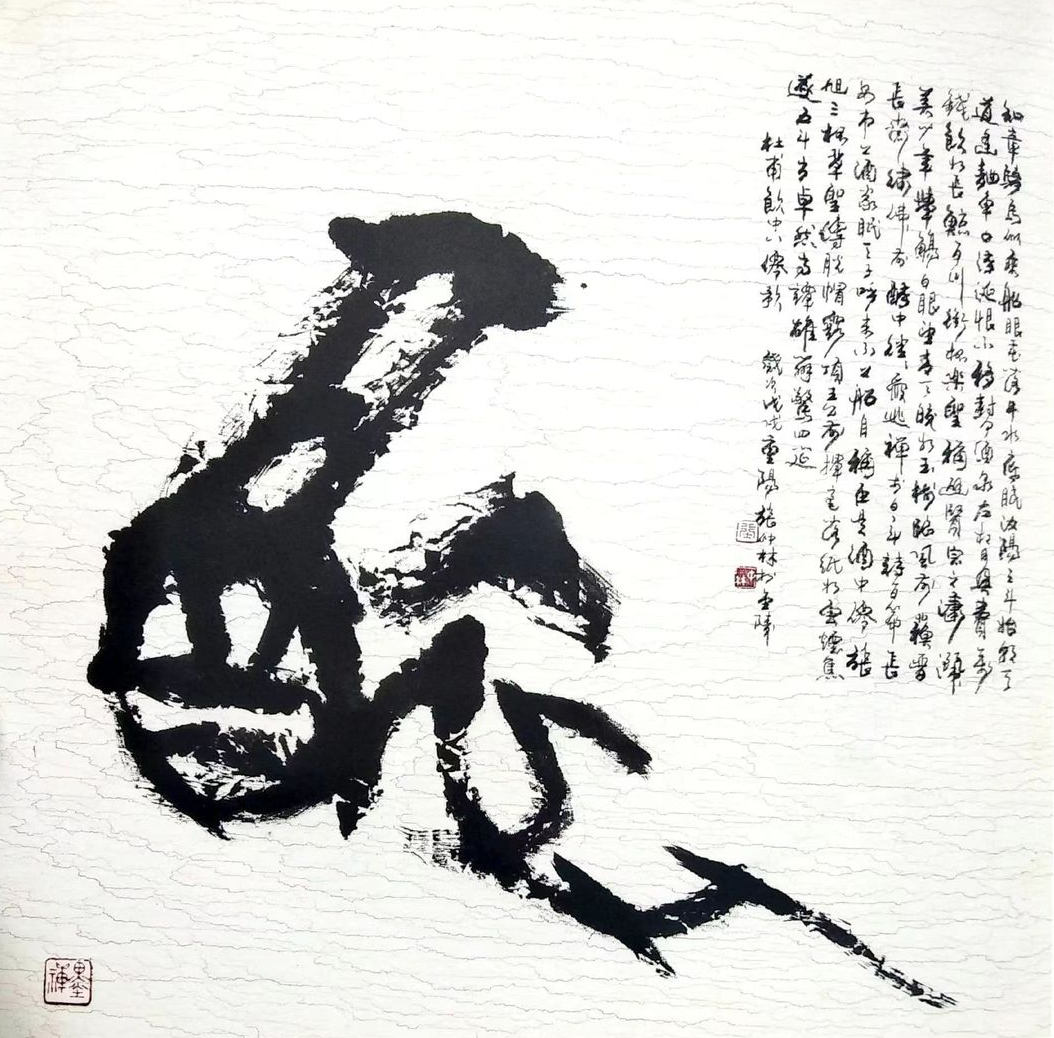 醉
知章騎馬似乘船眼花落井水底眠汝陽三斗始朝天
道逢麴車口流涎恨不移封向酒泉左相日興費萬
錢飲如長鯨百川銜杯樂聖稱避賢宗之瀟灑
美少年舉觴白眼望青天皎如玉樹臨風前蘇晉
長齋繡佛前醉中往往愛逃禪李白一斗詩百篇長
安市上酒家眠天子呼來不上船自稱臣是酒中僊張
旭三杯草聖傳脫帽露頂王公前揮毫落紙如雲煙焦
遂五斗方卓然高談雄辯驚四筵
杜甫飲中八僊歌 歲次戊戌重陽張仲林於金陵
仲林
墨禪